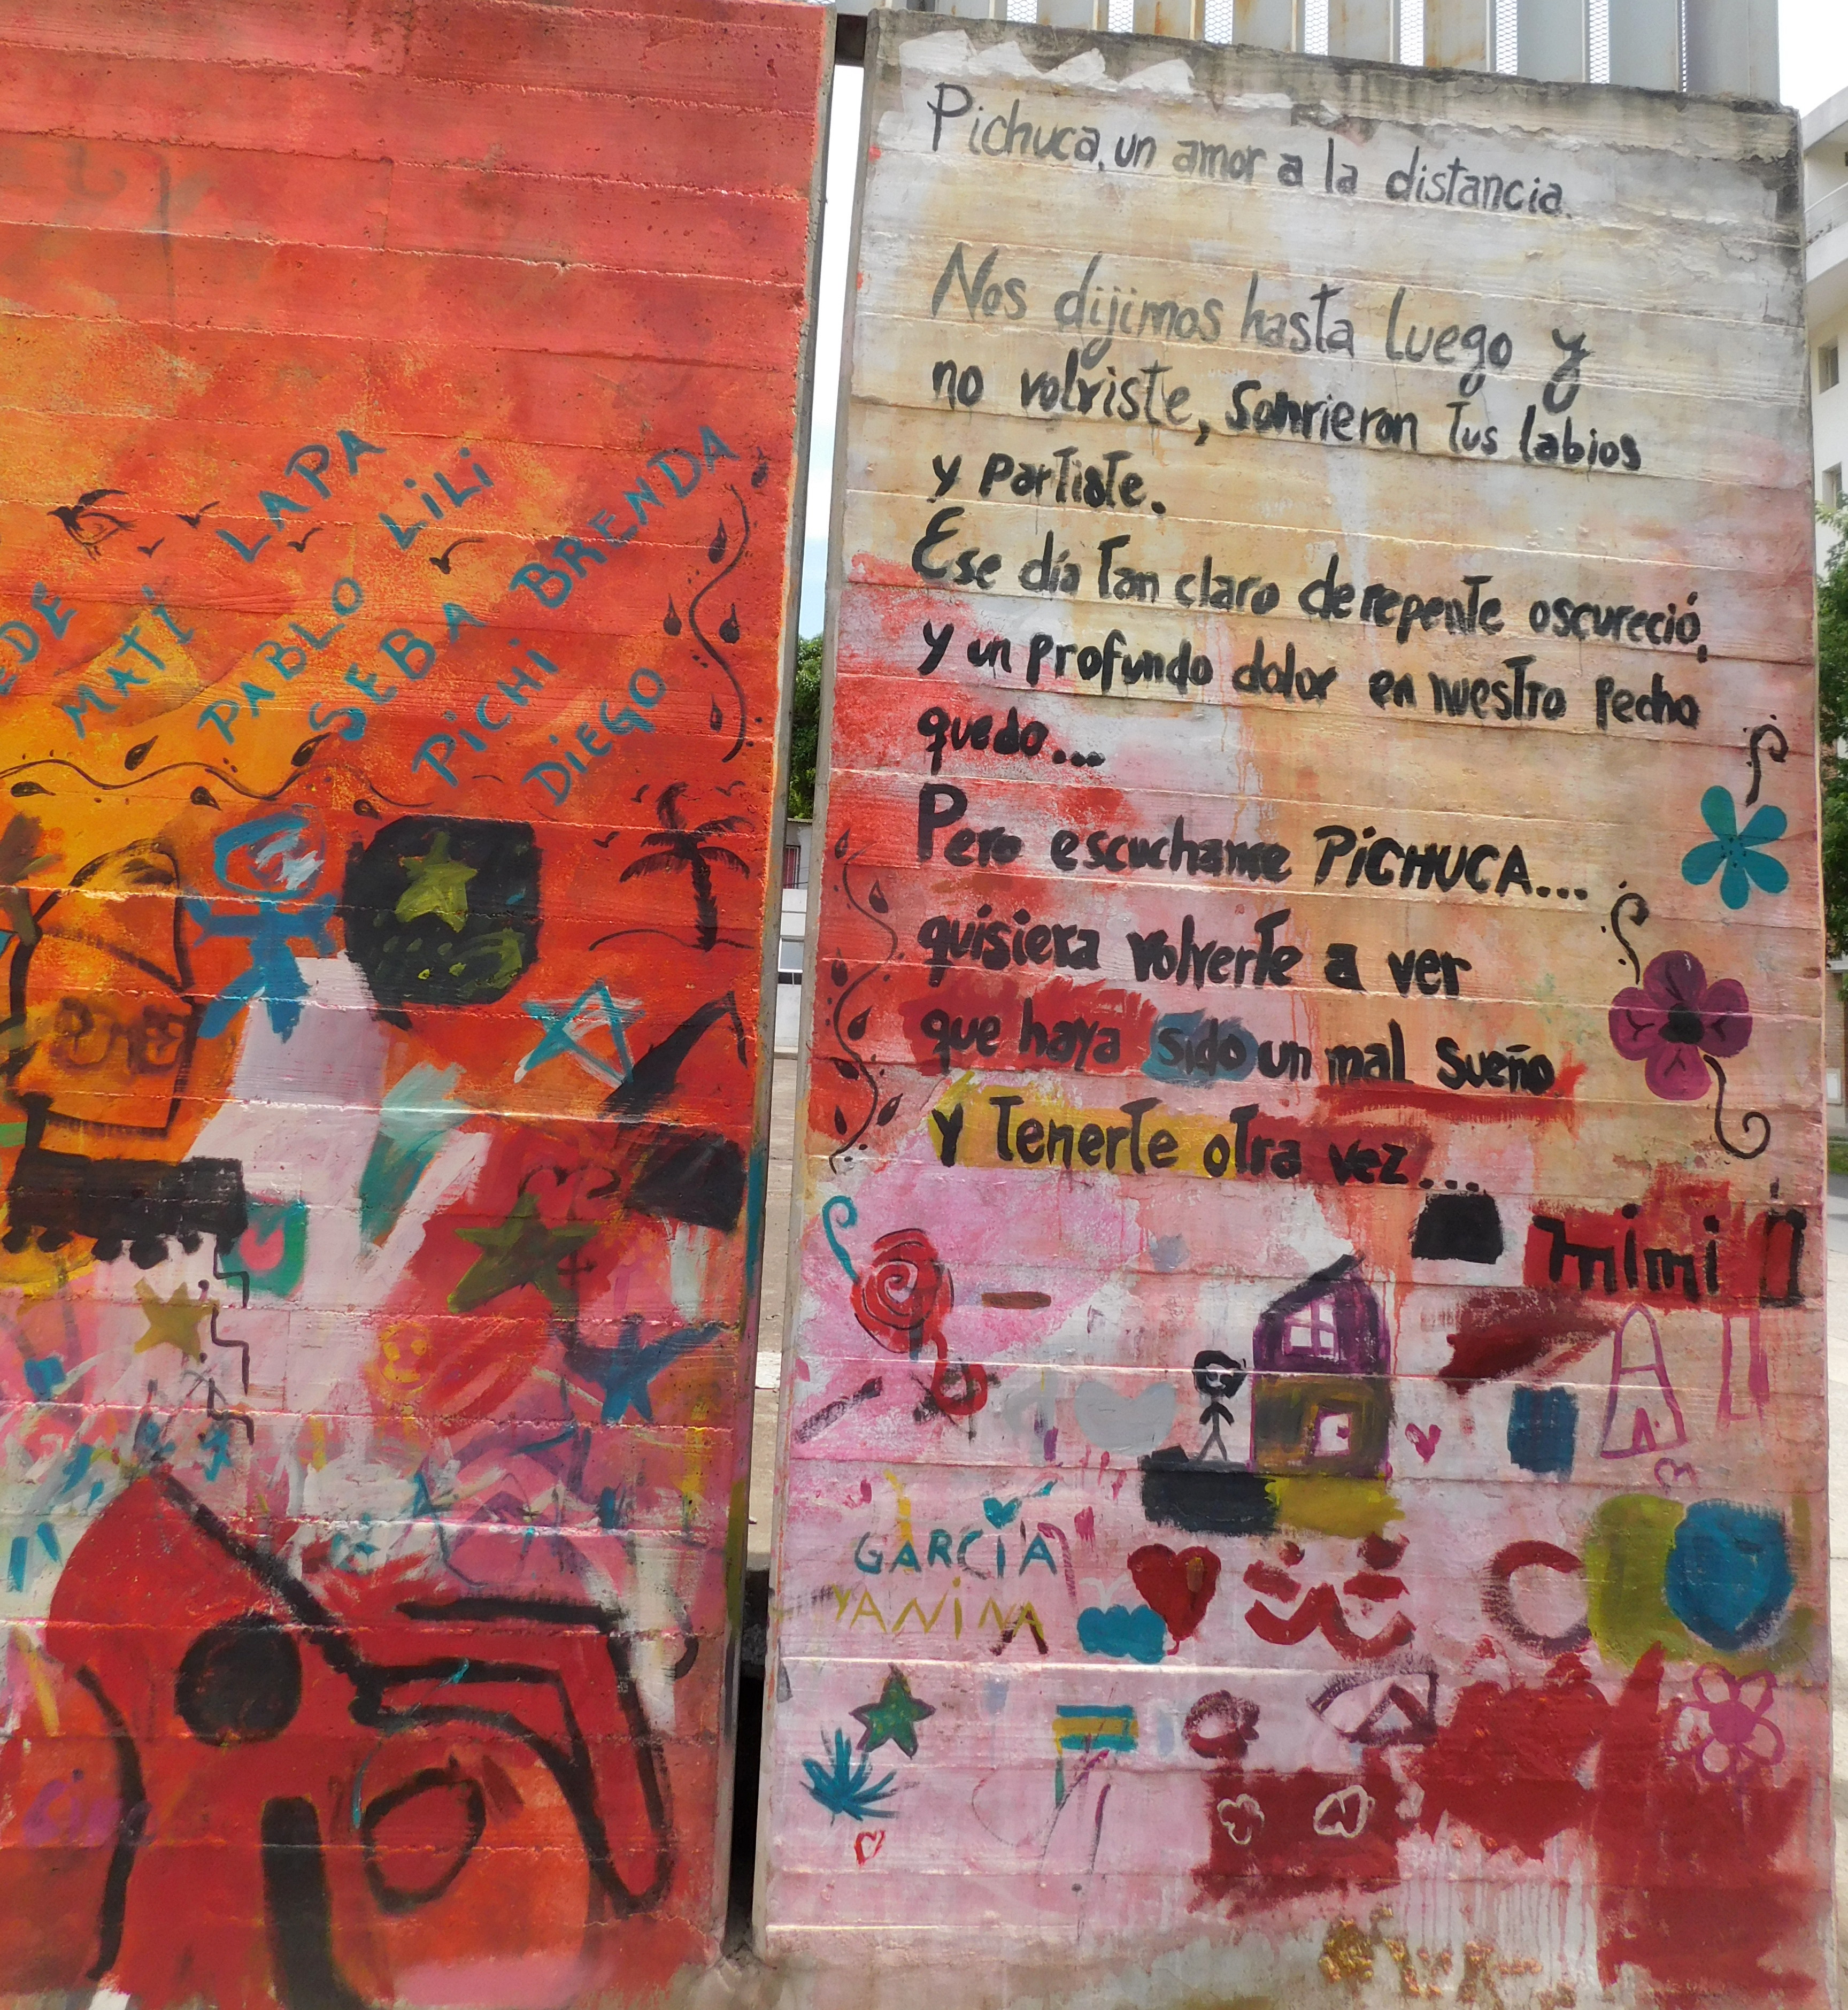 LAPA
LiLi
EDE
MATi
PABLO
SEBA BRENDA
PiCHi
DiEGO
Pichuca, un amor a la distancia.
Nos dijimos hasta luego y
no volviste, Sonrieron tus labios
y partiste.
Ese día tan claro derepente oscureció,
y un profundo dolor en nuestro pecho
quedo...
Pero escuchame PiCHUCA...
quisiera volverte a ver
que haya sido un mal sueño
y tenerte otra vez...
mimi
GARCiA
YANiNA